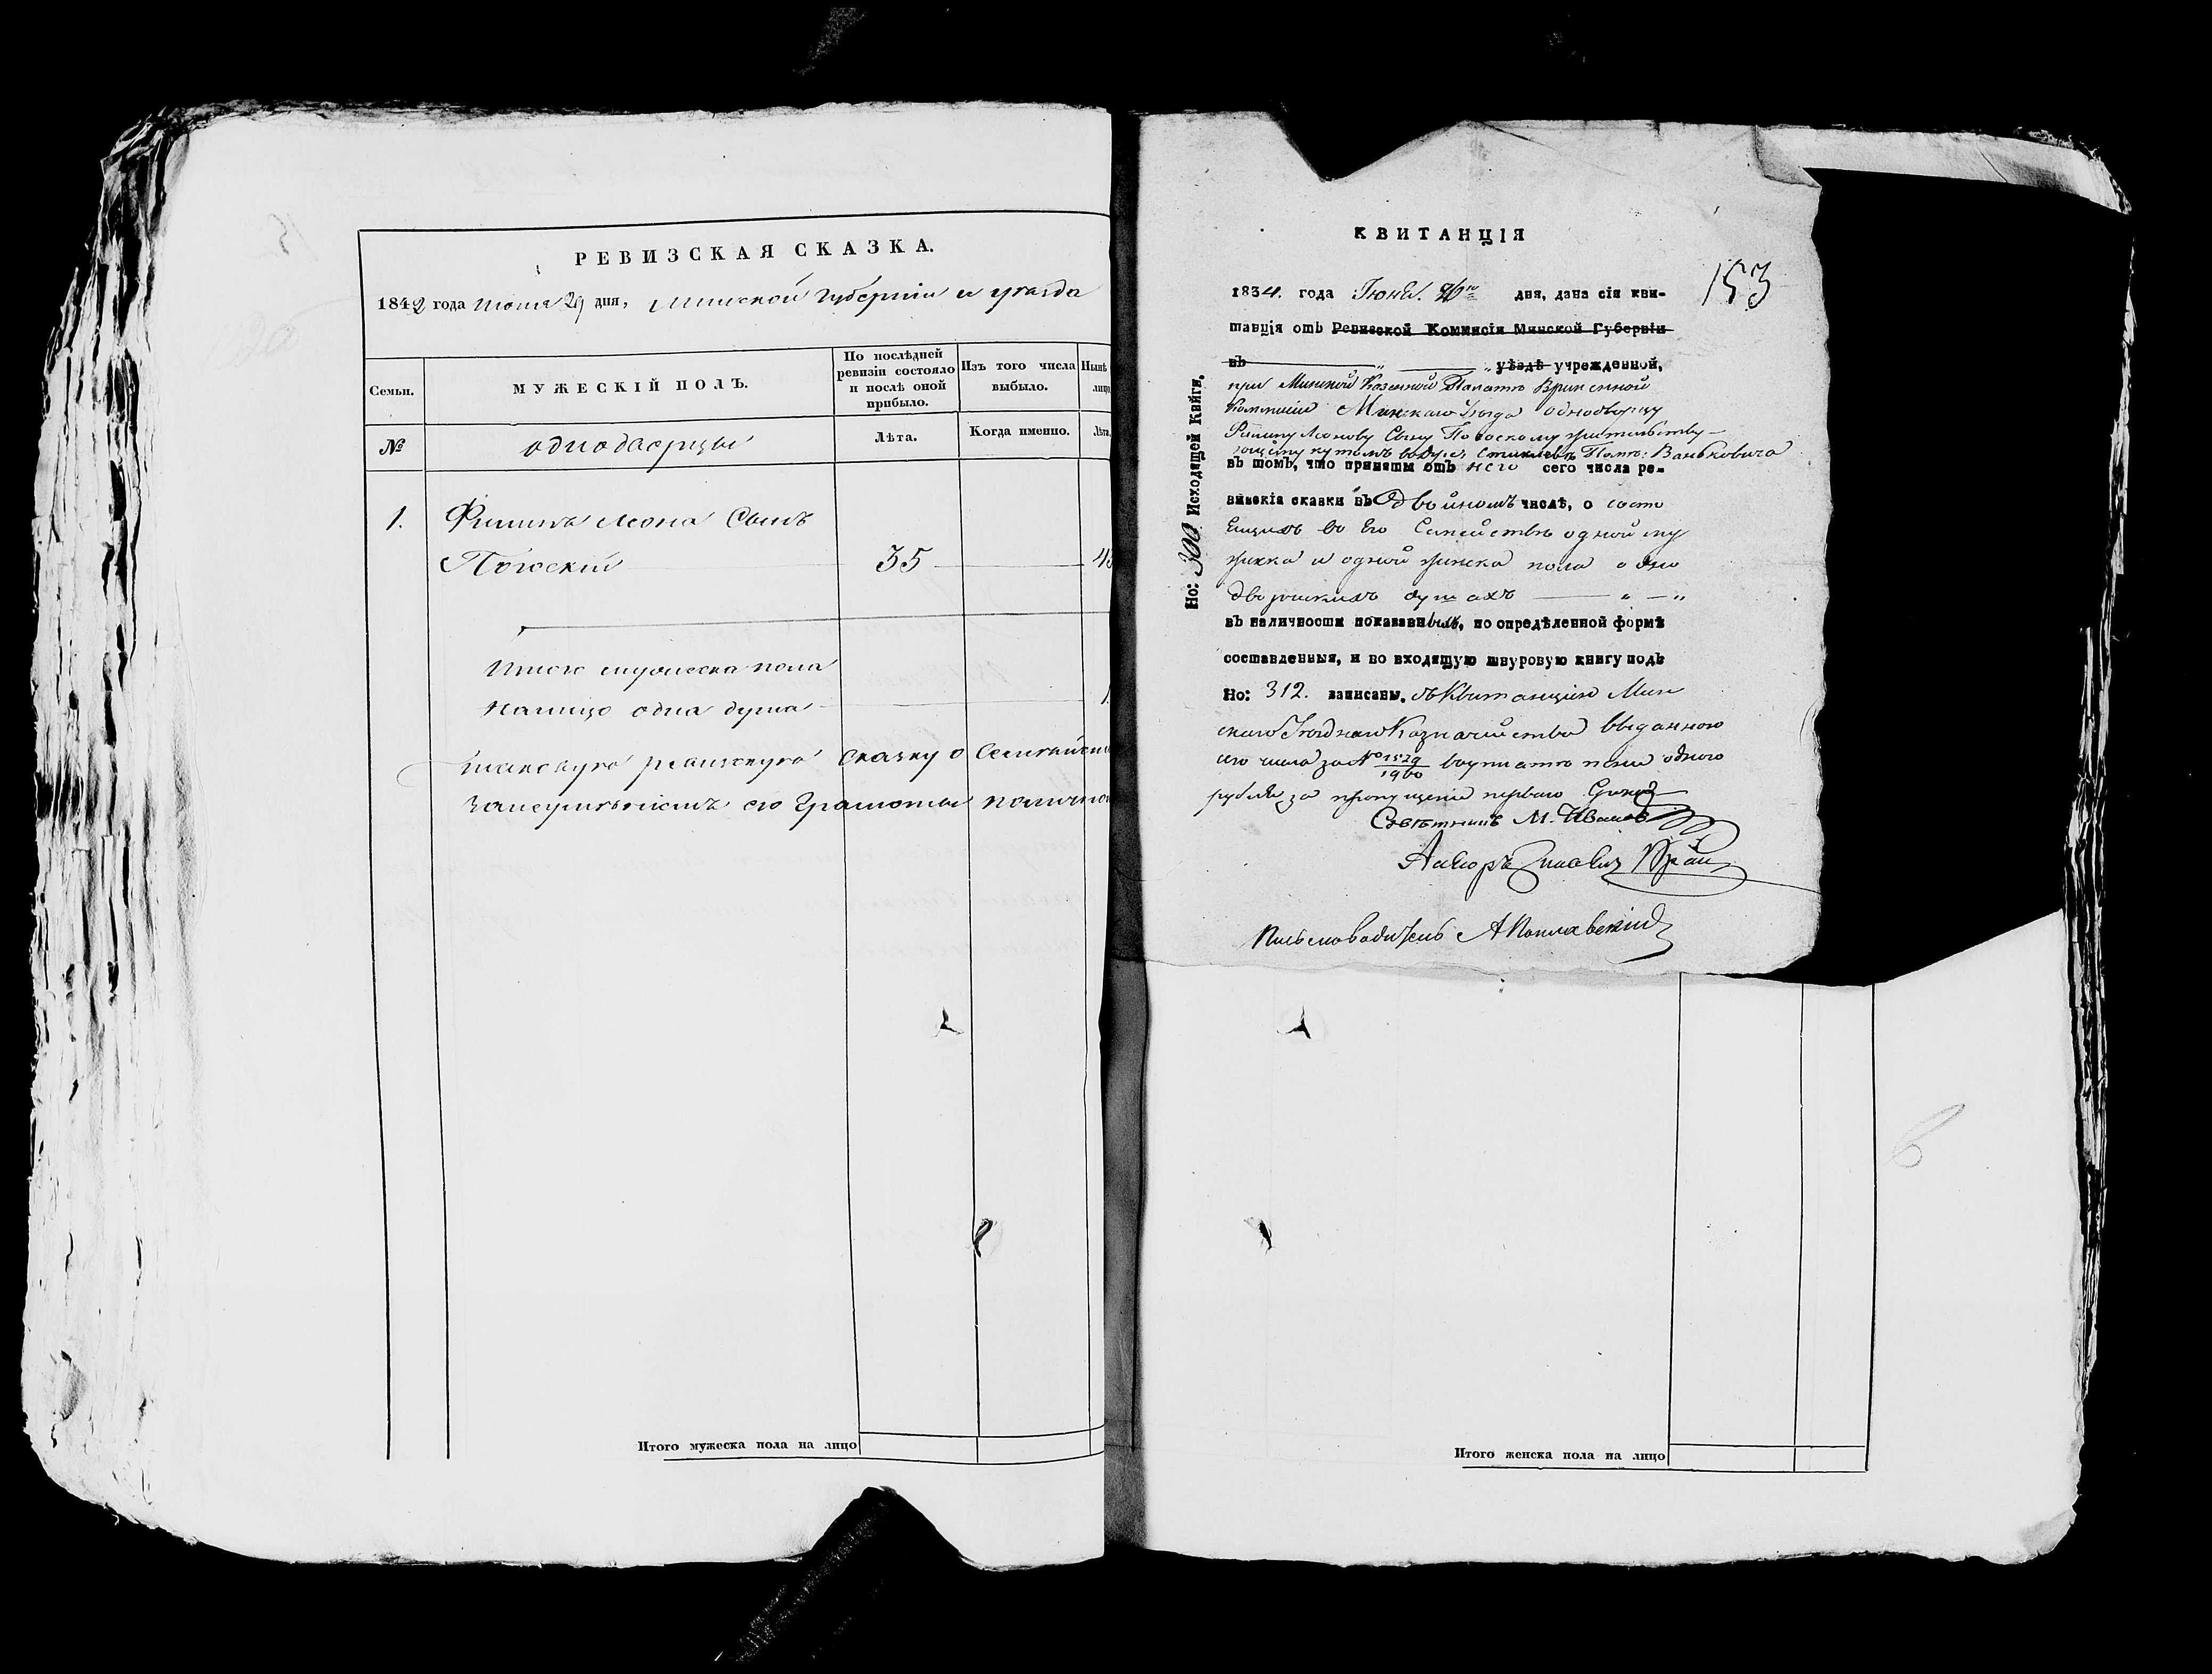 РЕВИЗСКАЯ СКАЗКА.
1842 года Июня 29 дня, Минской Губерніи и уезда
Семьи.
МУЖЕСКІЙ ПОЛЪ.
По послѣдней ревизіи состояло и послѣ оной прибыло.
Изъ того числа выбыло.
Нынѣ
лицо
№
однодворцы
Лѣта.
Когда именно.
Лѣта.
1.
Филипъ Леона Сынъ
Погоскій
35
43
Итого мужеска пола
налицо одна душа
1.
таковую ревизскую сказку о
за неумѣніемъ его грамоты
Итого мужеска пола на лицо
КВИТАНЦІЯ
153
1834. года Іюня. дня, дана сія кви-
танція отъ Ревизской Коммисіи Минской Губерніи
въ уѣздѣ учрежденной,
при Минской Казенной Палатѣ Временной
Коммисіи Минскаго Уѣзда однодворцу
Филипу Леонову Сыну Погоскому жительству-
ющему Ваньковича
въ томъ, что приняты отъ него сего числа ре-
визскія сказки въ Двойномъ числѣ, о состо
ящихъ во его Семействѣ одной му
жеска и одной женска пола одно
дворческихъ душахъ
въ наличности показанныхъ, по опредѣленной формѣ
составленныя, и во входящую шнуровую книгу подъ
Но: 312. записаны, съ Квитанціею Мин
скаго Уѣзднаго Казначейства выданною
сего числа за № 1529
1960
пени одного
рубля за пропущеніе перваго Срока
Совѣтникъ М. Иванов
Письмоводитель А Поплавскій
Но: 300 Исходящей Книги.
Итого женска пола на лицо